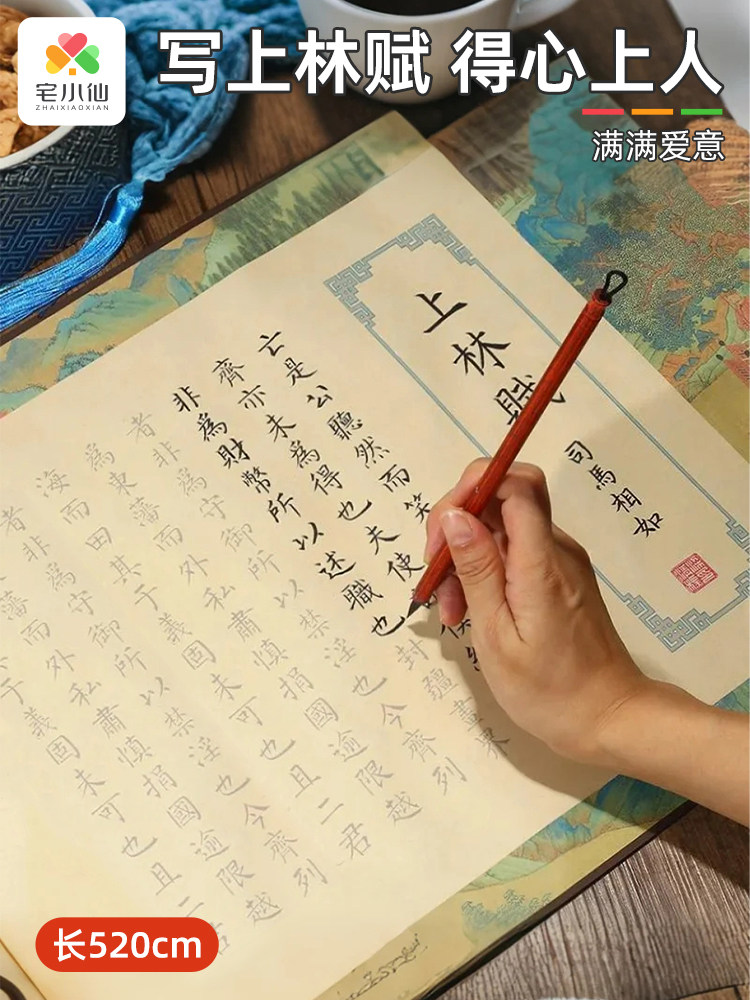 宅小仙
ZHAIXIAOXIAN
写上林赋 得心上人
满满爱意
上林賦
司馬相如
亡是公聽然而笑
齊亦未為得也夫使
非為財幣所以述職也封疆畫
者非為守御所以禁淫也今齊列
為東藩而外私肅慎捐國逾限越
海而田其于義固未可也且二君
者非為守御所以禁淫也今齊列
藩而外私肅慎捐國逾限越
于義固未可也且二君
长520cm